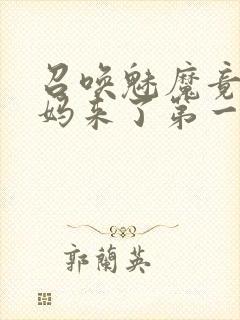 召唤魅魔竟
妈来了第一
郭蘭英